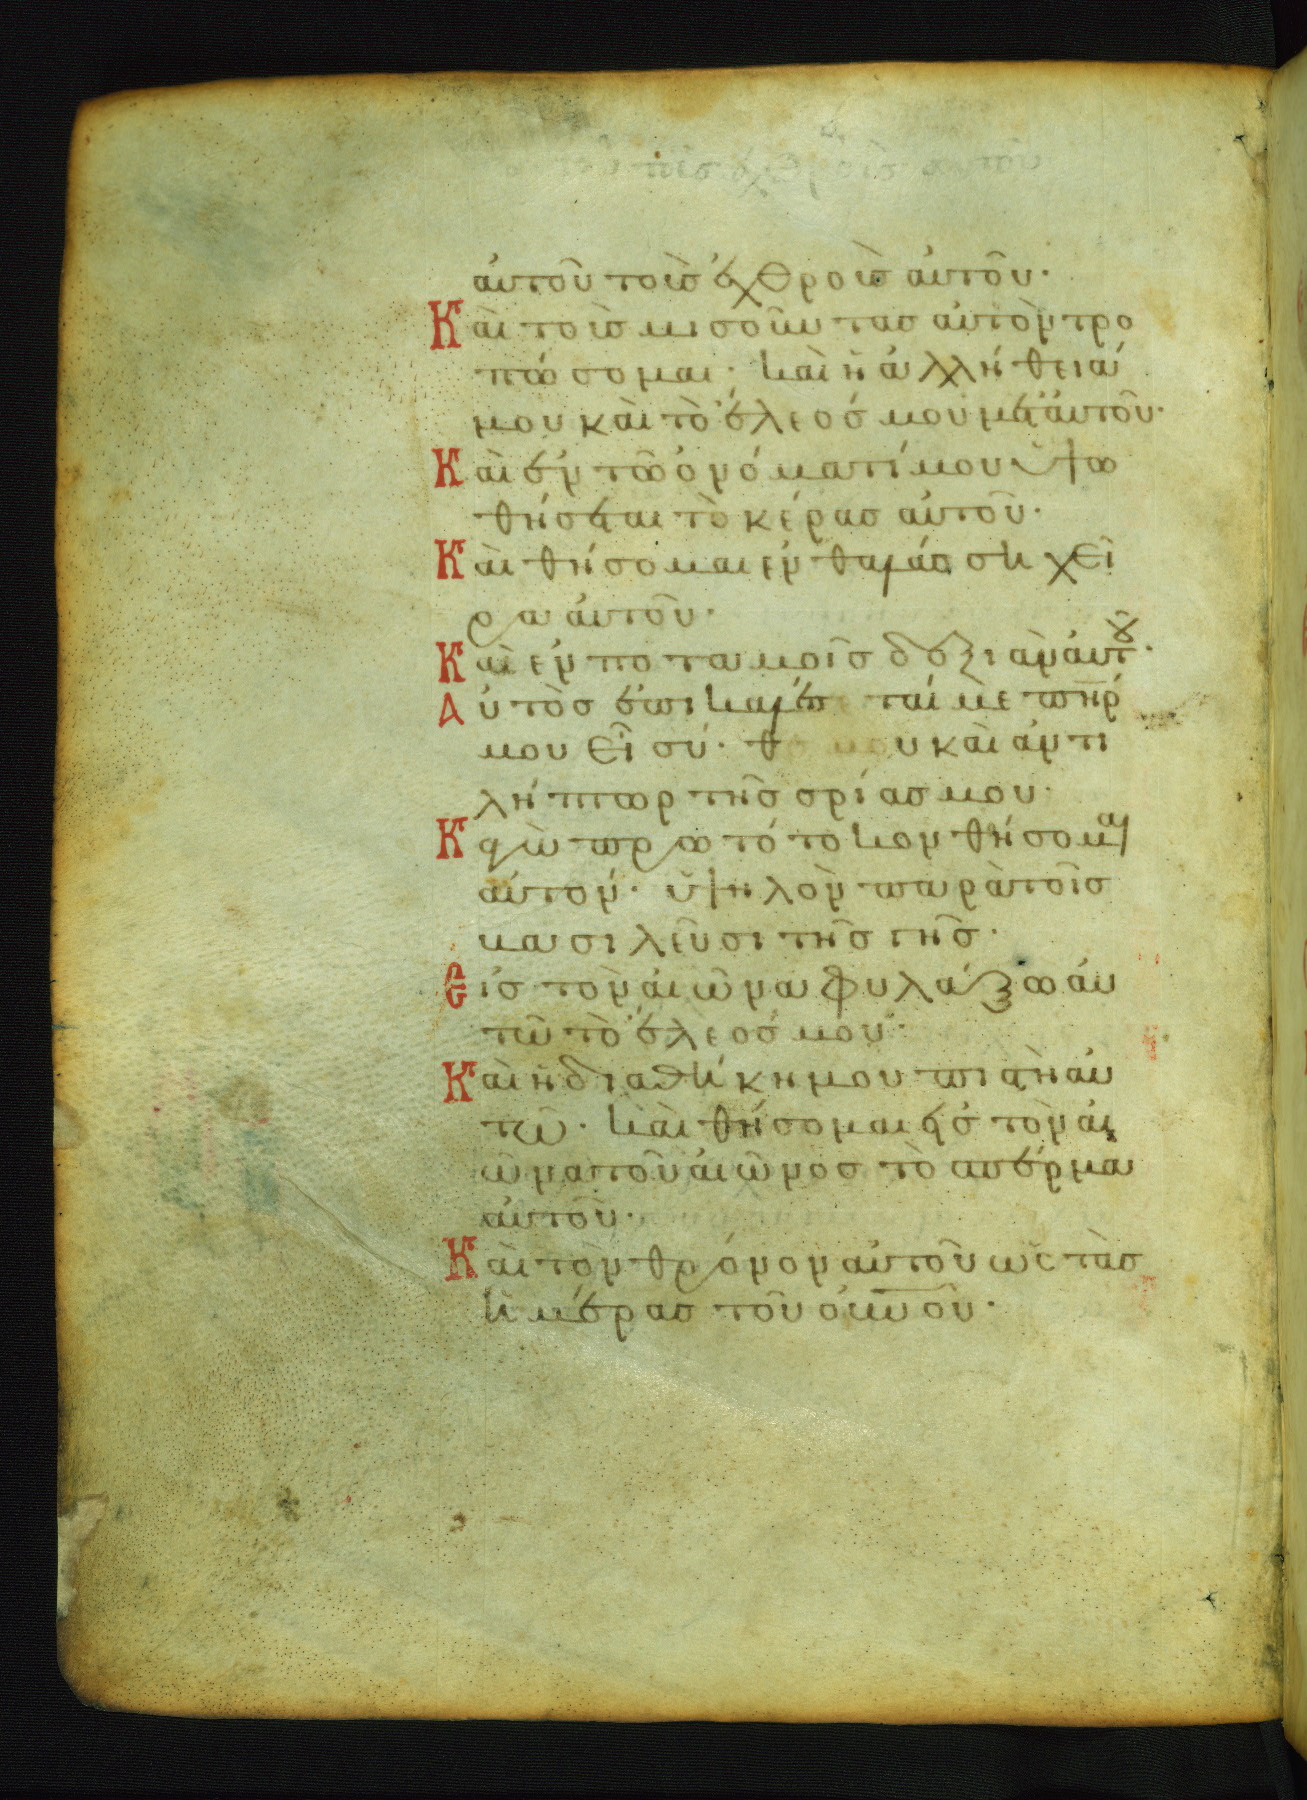 τοῖσ ἐχθροῖσ αυτοῦ
ἀυτοῦ τοῖσ ἐχθροῖσ ἀυτοῦ·
Καὶ τοῖσ μισοῦντασ αὐτὸν τρο
πώσομαι· καὶ ἡ ἀλλήθειά
μου κὰι τὸ ἔλεόσ μου μετ' ἀυτοῦ·
Καὶ ἐν τῶ ὀνόματί μου ὑψω
θήσεται τὸ κέρασ ἀυτοῦ·
Κὰι θήσομαι ἐν θαλάσση χεῖ
ρα ἀυτοῦ·
Καὶ ἐν ποταμοῖσ δεξιὰν ἀυτοῦ·
Αὐτὸσ ἐπικαλέσεταί με πηρ
μου εἶ σύ· θσ μου κὰι ἀντι
λήπτωρ τῆσ σρίασ μου·
Κἀγὼ πρωτότοκον θήσομαι
αὐτον· ὑψηλὸν παρὰ τοῖσ
βασιλεῦσι τῆσ γῆσ·
Εἰσ τὸν ἀιῶνα φυλάξω ἀυ
τῶ τὸ ἔλεόσ μου·
Κὰι ἡ διαθήκη μου πιστὴ ἀυ
τῶ· κὰι θήσομαι εἰσ τὸν ἀι
ῶνα τοῦ ἀιῶνοσ τὸ σπέρμα
ἀυτοῦ·
Κὰι τὸν θρόνον αὐτοῦ ὡσ τὰσ
ἡμέρασ τοῦ ουνου·